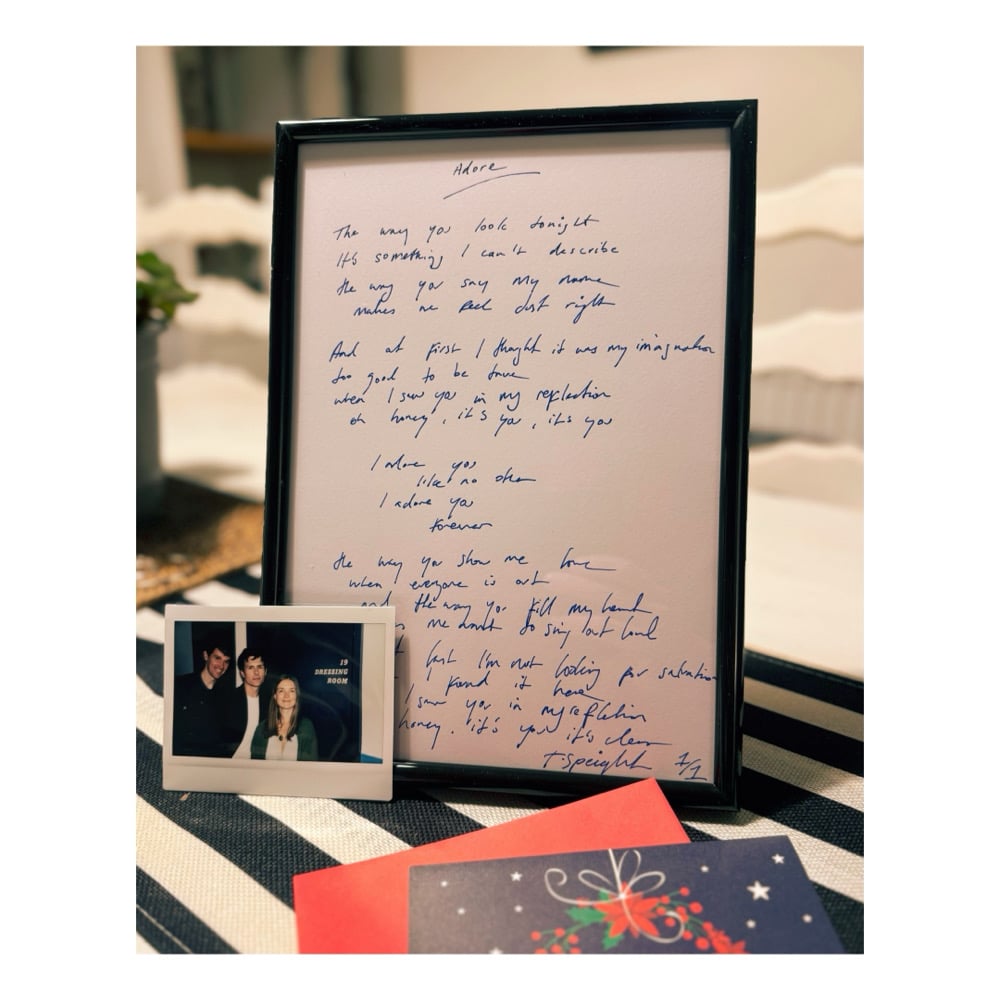 Adore
The way you look tonight
It's something I can't describe
the way you say my name
makes me feel just right
And at first I thought it was my imagination
too good to be true
when I saw you in my reflection
oh honey, it's you, it's you
I adore you
like no other
I adore you
forever
The way you show me love
when everyone is out
and the way you fill my heart
me want to sing out loud
fact I'm not looking for salvation
found it here
I saw you in my reflection
honey, it's you it's clear
T. Speight 1/1
19
DRESSING
ROOM